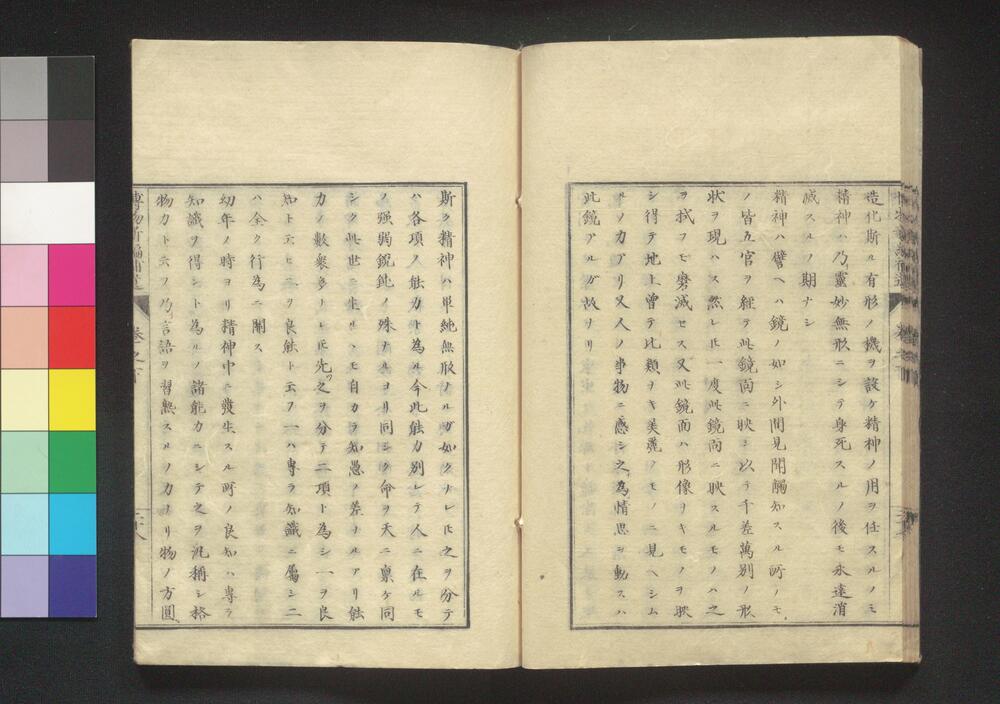 造化斯ル有形ノ機ヲ設ケ精神ノ用ヲ任スルノミ
精神ハ乃靈妙無形ニシテ身死スルノ後モ永遠消
滅スルノ期ナシ
精神ハ譬ヘハ鏡ノ如シ外間見聞觸知スル所ノモ
ノ皆五官ヲ経テ此鏡面ニ映シ以テ千差萬別ノ形
状ヲ現ハス然レ𪜈一度此鏡面ニ映スルモノハ之
ヲ拭フモ磨滅セス又此鏡面ハ形像ヲキモノヲ映
シ得テ地上曽テ比類ヲキ美麗ノモノニ見ヘシム
ルノカアリ又人ノ事物ニ感シ之カ為ニ情思ヲ動スハ
此鏡アルガ故ナリ
斯ク精神ハ単純無形ノルガ如クナレ𪜈之ヲ分テ
ハ各項ノ能力ト為ル今此能力別レテ人ニ在ルモ
ノ强弱鋭鈍ノ殊ナルヨリ同シク命ヲ天ニ稟ケ同
シク此世ニ生ルヽモ自カラ知愚ノ差ナルアリ能
力ノ數衆多ナレ𪜈先ツ之ヲ分テ二項ト為シ一ヲ良
知ト云ヒ二ヲ良能ト云フ一ハ専ラ知識ニ屬シ二
ハ全ク行為ニ關ス
幼年ノ時ヨリ精神中ニ發生スル所ノ良知ハ専ラ
知識ヲ得ント為ルノ諸能力ニシテ之ヲ汎稱シ格
物力ト云フ乃言語ヲ習熟スルノ力ナリ物ノ方圓
博物新編補遺 巻之下